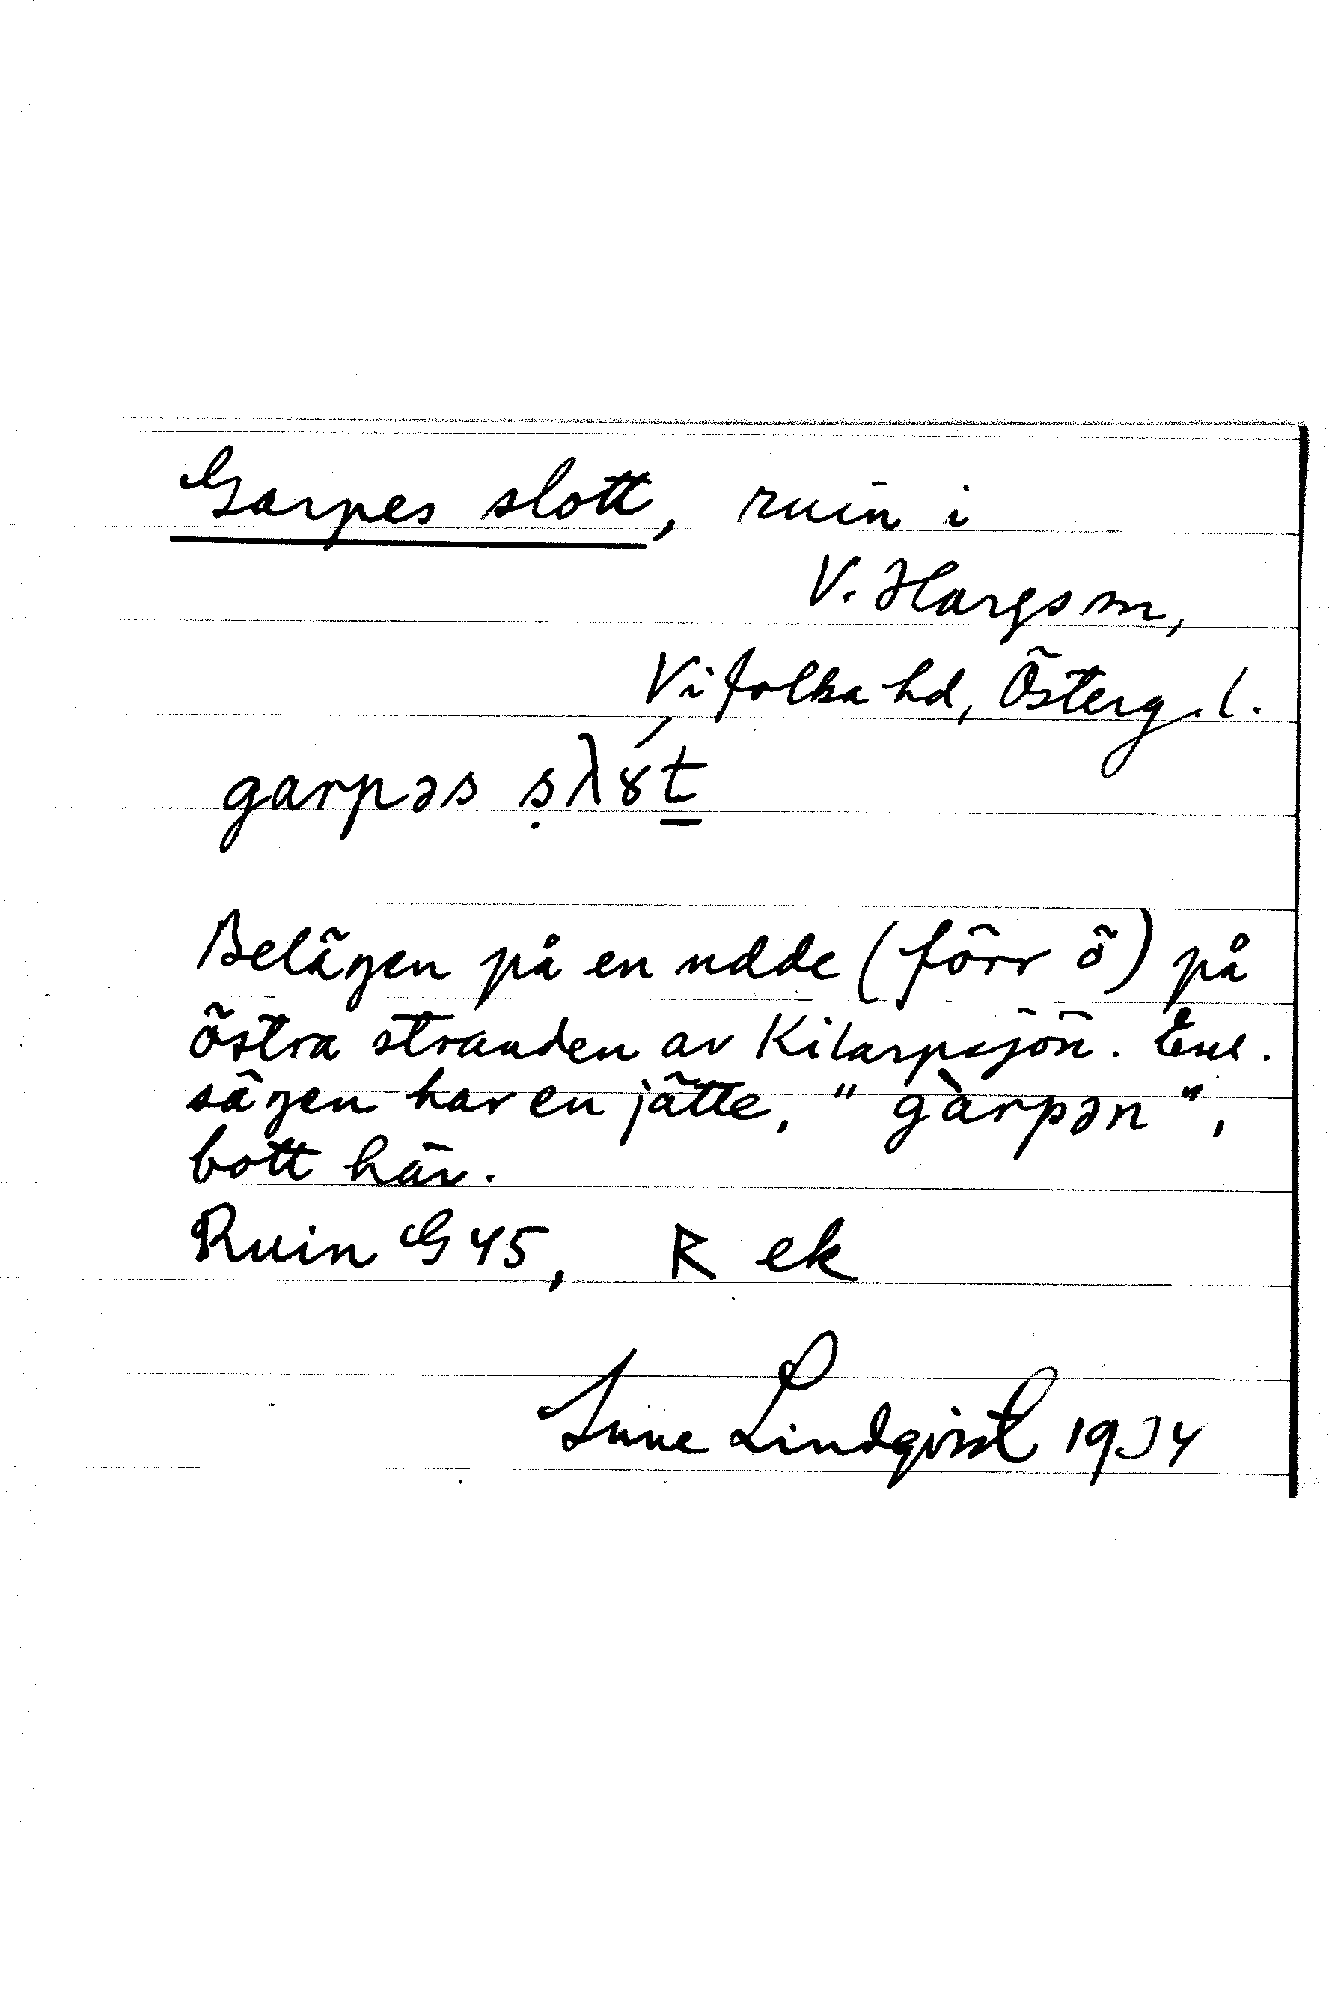 Garpes slott, ruin i
V. Hargs sn,
Vifolka hd, Österg. l.
garpəs sλ8́t
Belägen på en udde (förr ö) på
östra stranden av Kilarpesjön. Enl.
sägen har en jätte, "gàrpən",
bott här.
Ruin G 45, R ek
Sune Lindqvist 1934